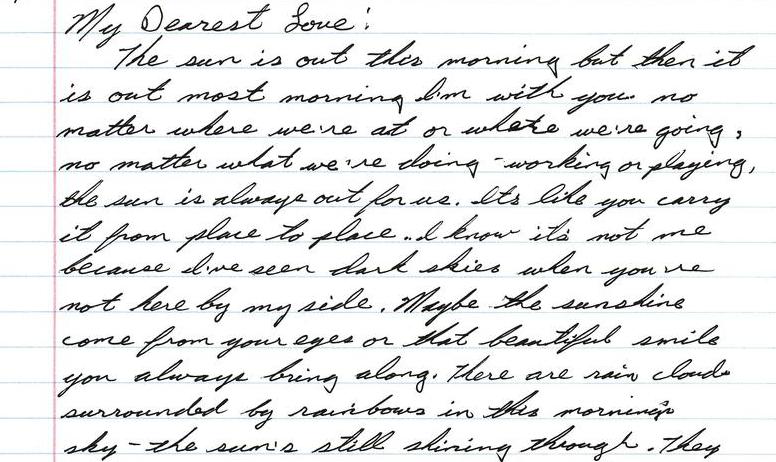 My Dearest Love!
The sun is out this morning but then it
is out most morning I'm with you. no
matter where we're at or where we're going,
no matter what we're doing - working or playing,
the sun is always out for us. It's like you carry
it from place to place.. I know it's not me
because I've seen dark skies when you're
not here by my side. Maybe the sunshine
come from your eyes or that beautiful smile
you always bring along. There are rain clouds
surrounded by rainbows in this morning's
sky - the sun's still shining through. They